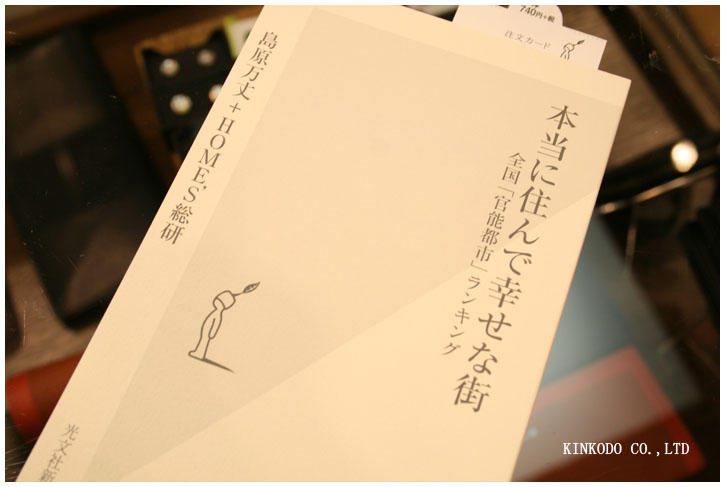 740円+税
注文カード
本当に住んで幸せな街
全国「官能都市」ランキング
島原万丈+HOME'S総研
光文社新
KINKODO CO.,LTD